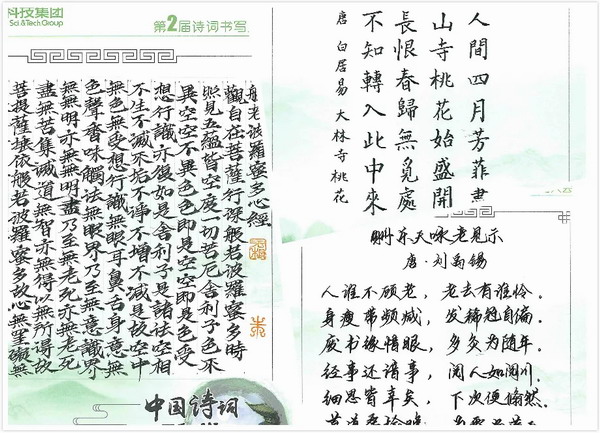 科技集团
Sci &TechGroup
第2届诗词书写
般若波羅蜜多心經
觀自在菩薩行深般若波羅蜜多時
照見五蘊皆空度一切苦厄舍利子色不
異空空不異色色即是空空即是色受
想行識亦復如是舍利子是諸法空相
不生不滅不垢不淨不增不減是故空中
無色無受想行識無眼耳鼻舌身意無
色聲香味觸法無眼界乃至無意識界
無無明亦無無明盡乃至無老死亦無老死
盡無苦集滅道無智亦無得以無所得故
菩提薩埵依般若波羅蜜多故心無罣礙無
中国诗词
人間四月芳菲盡
山寺桃花始盛開
長恨春歸無覓處
不知轉入此中來
唐 白居易 大林寺桃花
酬乐天咏老见示
唐·刘禹锡
人谁不顾老，老去有谁怜。
身瘦带频减，发稀冠自偏。
废书缘惜眼，多灸为随年。
经事还谙事，阅人如阅川。
细思皆幸矣，下次便翛然。